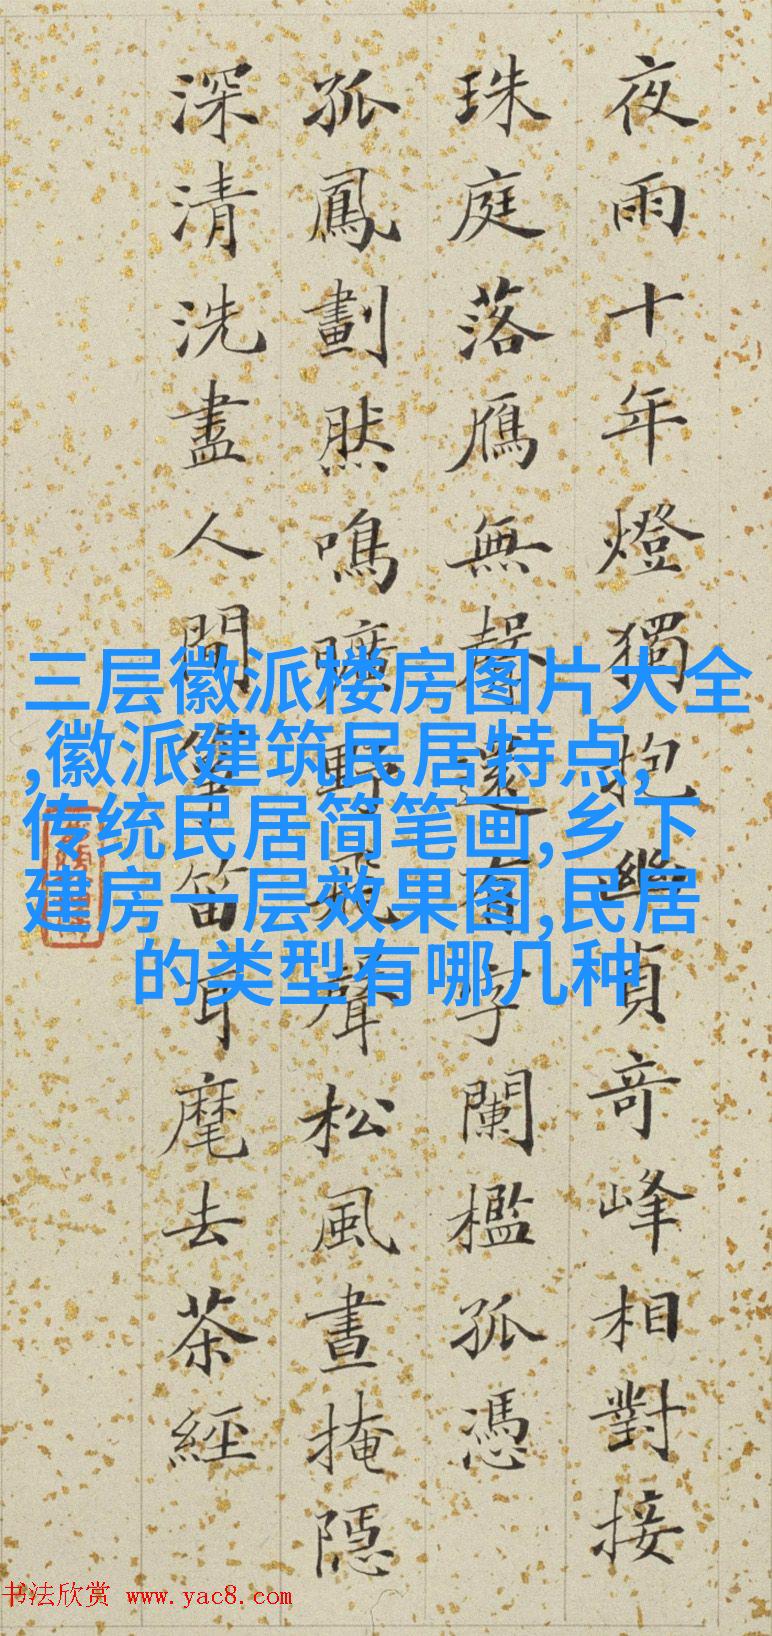 夜雨十年燈獨抱幽貞奇峰相對接
珠庭落鴈無聲還有字闌檻孤憑
孤鳳劃然鳴曠野聲松風晝掩隠
深清洗盡人間箏笛耳麾去茶經
三层徽派楼房图片大全
,徽派建筑民居特点,
传统民居简笔画,乡下
建房一层效果图,民居
的类型有哪几种
书法欣赏 www.yac8.com